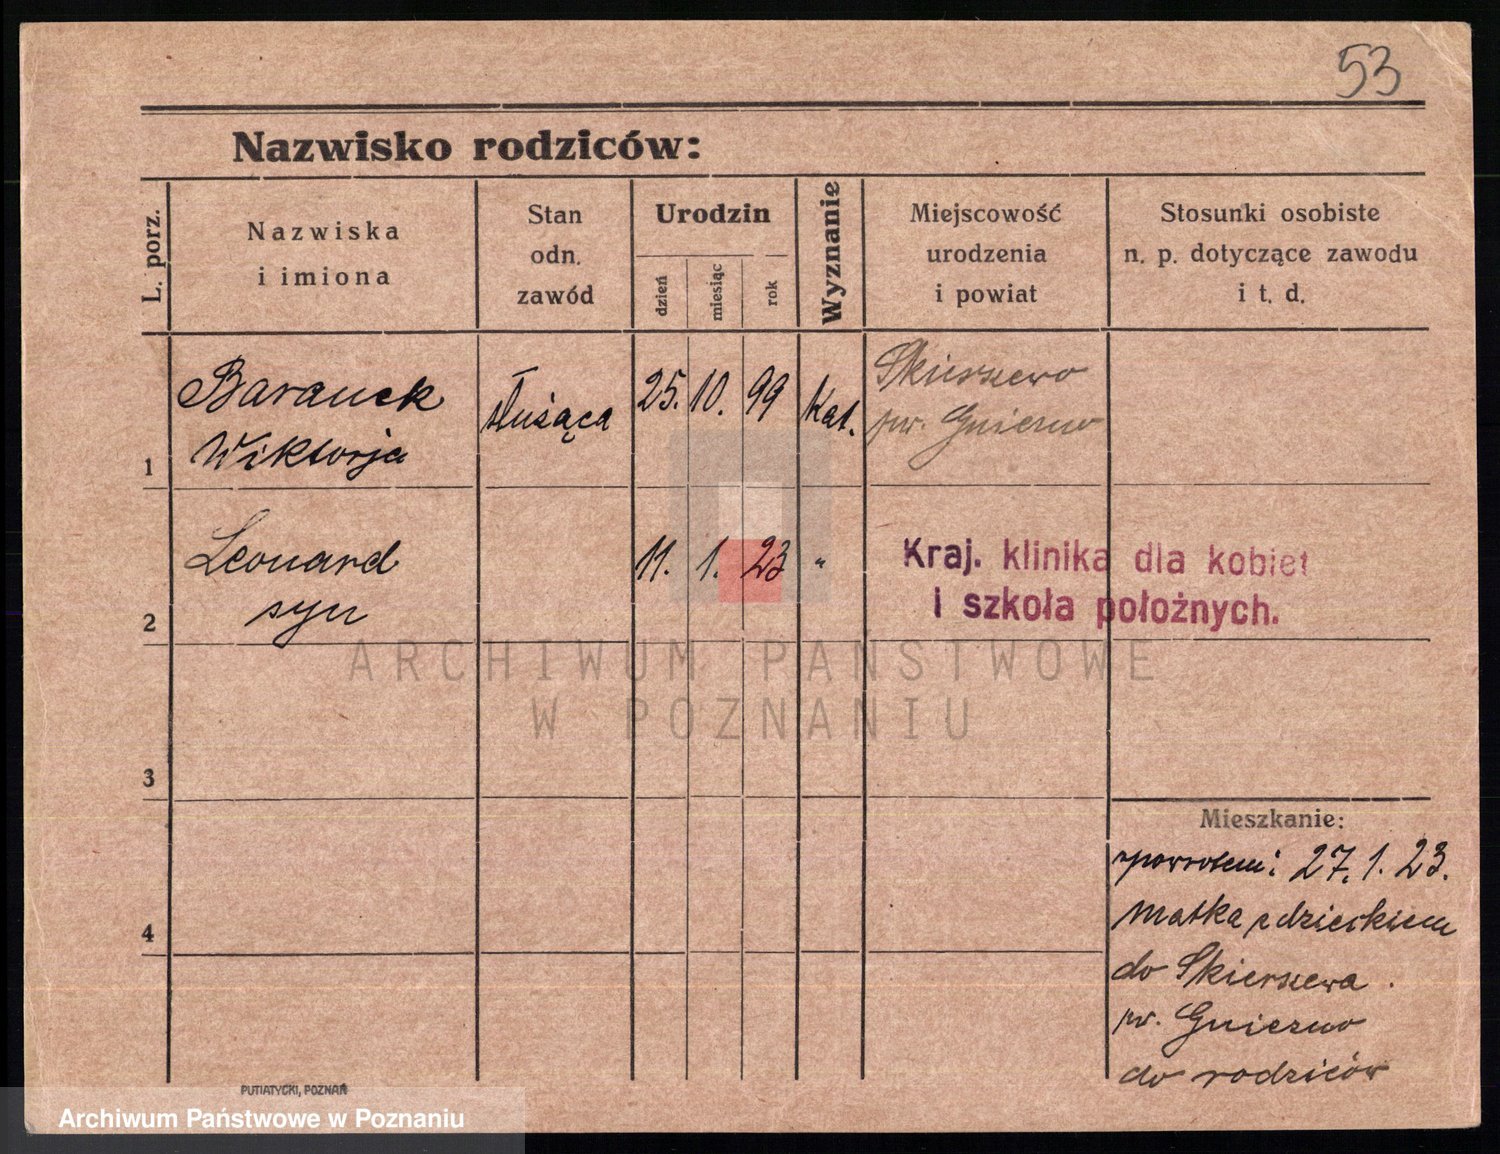 53
Nazwisko rodziców:
L. porz.
Nazwiska
i imiona
Stan
odn.
zawód
Urodzin
dzień
miesiąc
rok
Wyznanie
Miejscowość
urodzenia
i powiat
Stosunki osobiste
n. p. dotyczące zawodu
i t. d.
1
Baranek
Wiktorja
służąca
25. 10. 99
Kat.
Skierszewo
pw. Gniezno
2
Leonard
syn
11. 1. 23 "
Kraj. klinika dla kobiet
i szkoła położnych.
ARCHIWUM PAŃSTWOWE
W POZNANIU
3
4
Mieszkanie:
zpowrotem: 27. 1. 23.
matka z dzieckiem
do Skierszewa.
pw. Gniezno
do rodziców
PUTIATYCKI, POZNAŃ
Archiwum Państwowe w Poznaniu